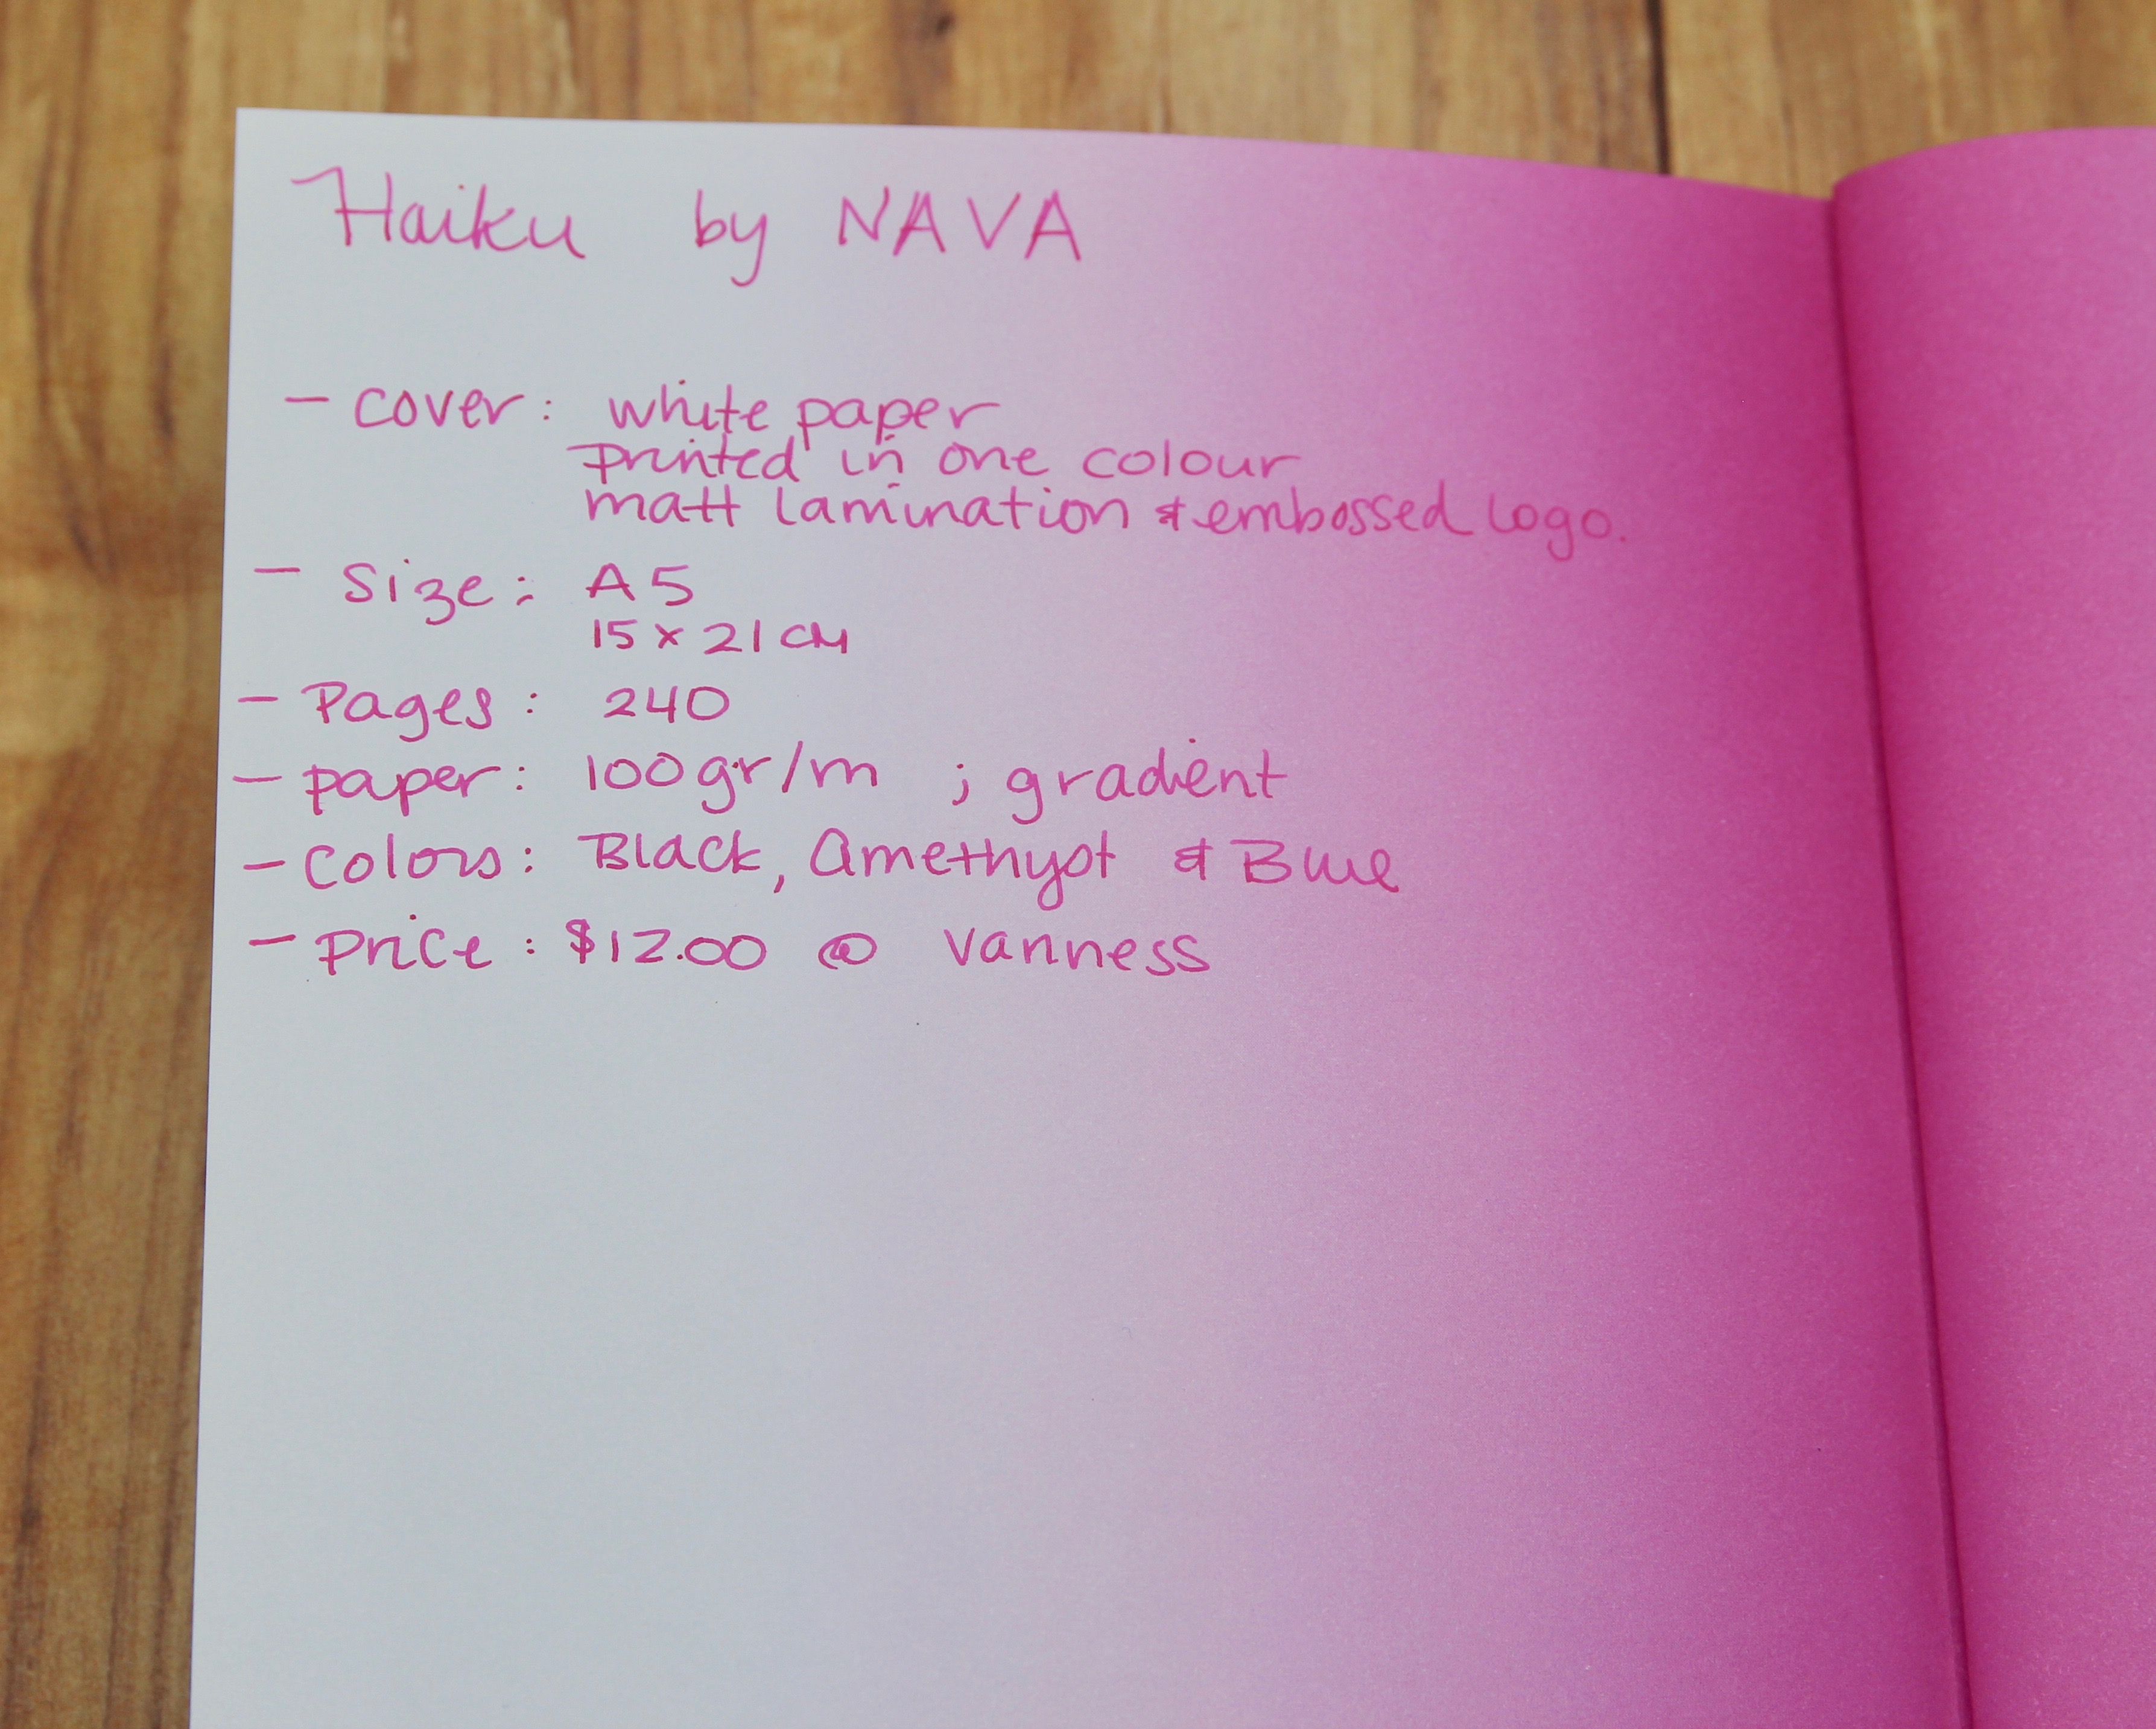 Haiku by NAVA
- cover: white paper
printed in one colour
matt lamination & embossed logo.
- Size: A5
15 x 21 cm
- Pages: 240
- paper: 100gr/m ; gradient
- Colors: Black, Amethyst & Blue
- Price: $12.00 @ Vanness